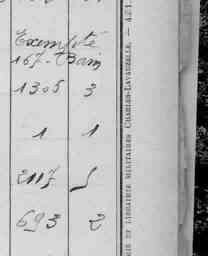 Exempté
167 - Bain
1305 3
1 1
2117 5
693 2
RIE ET LIBRAIRIE MILITAIRES CHARLES-LAVAUZELLE. — 421.